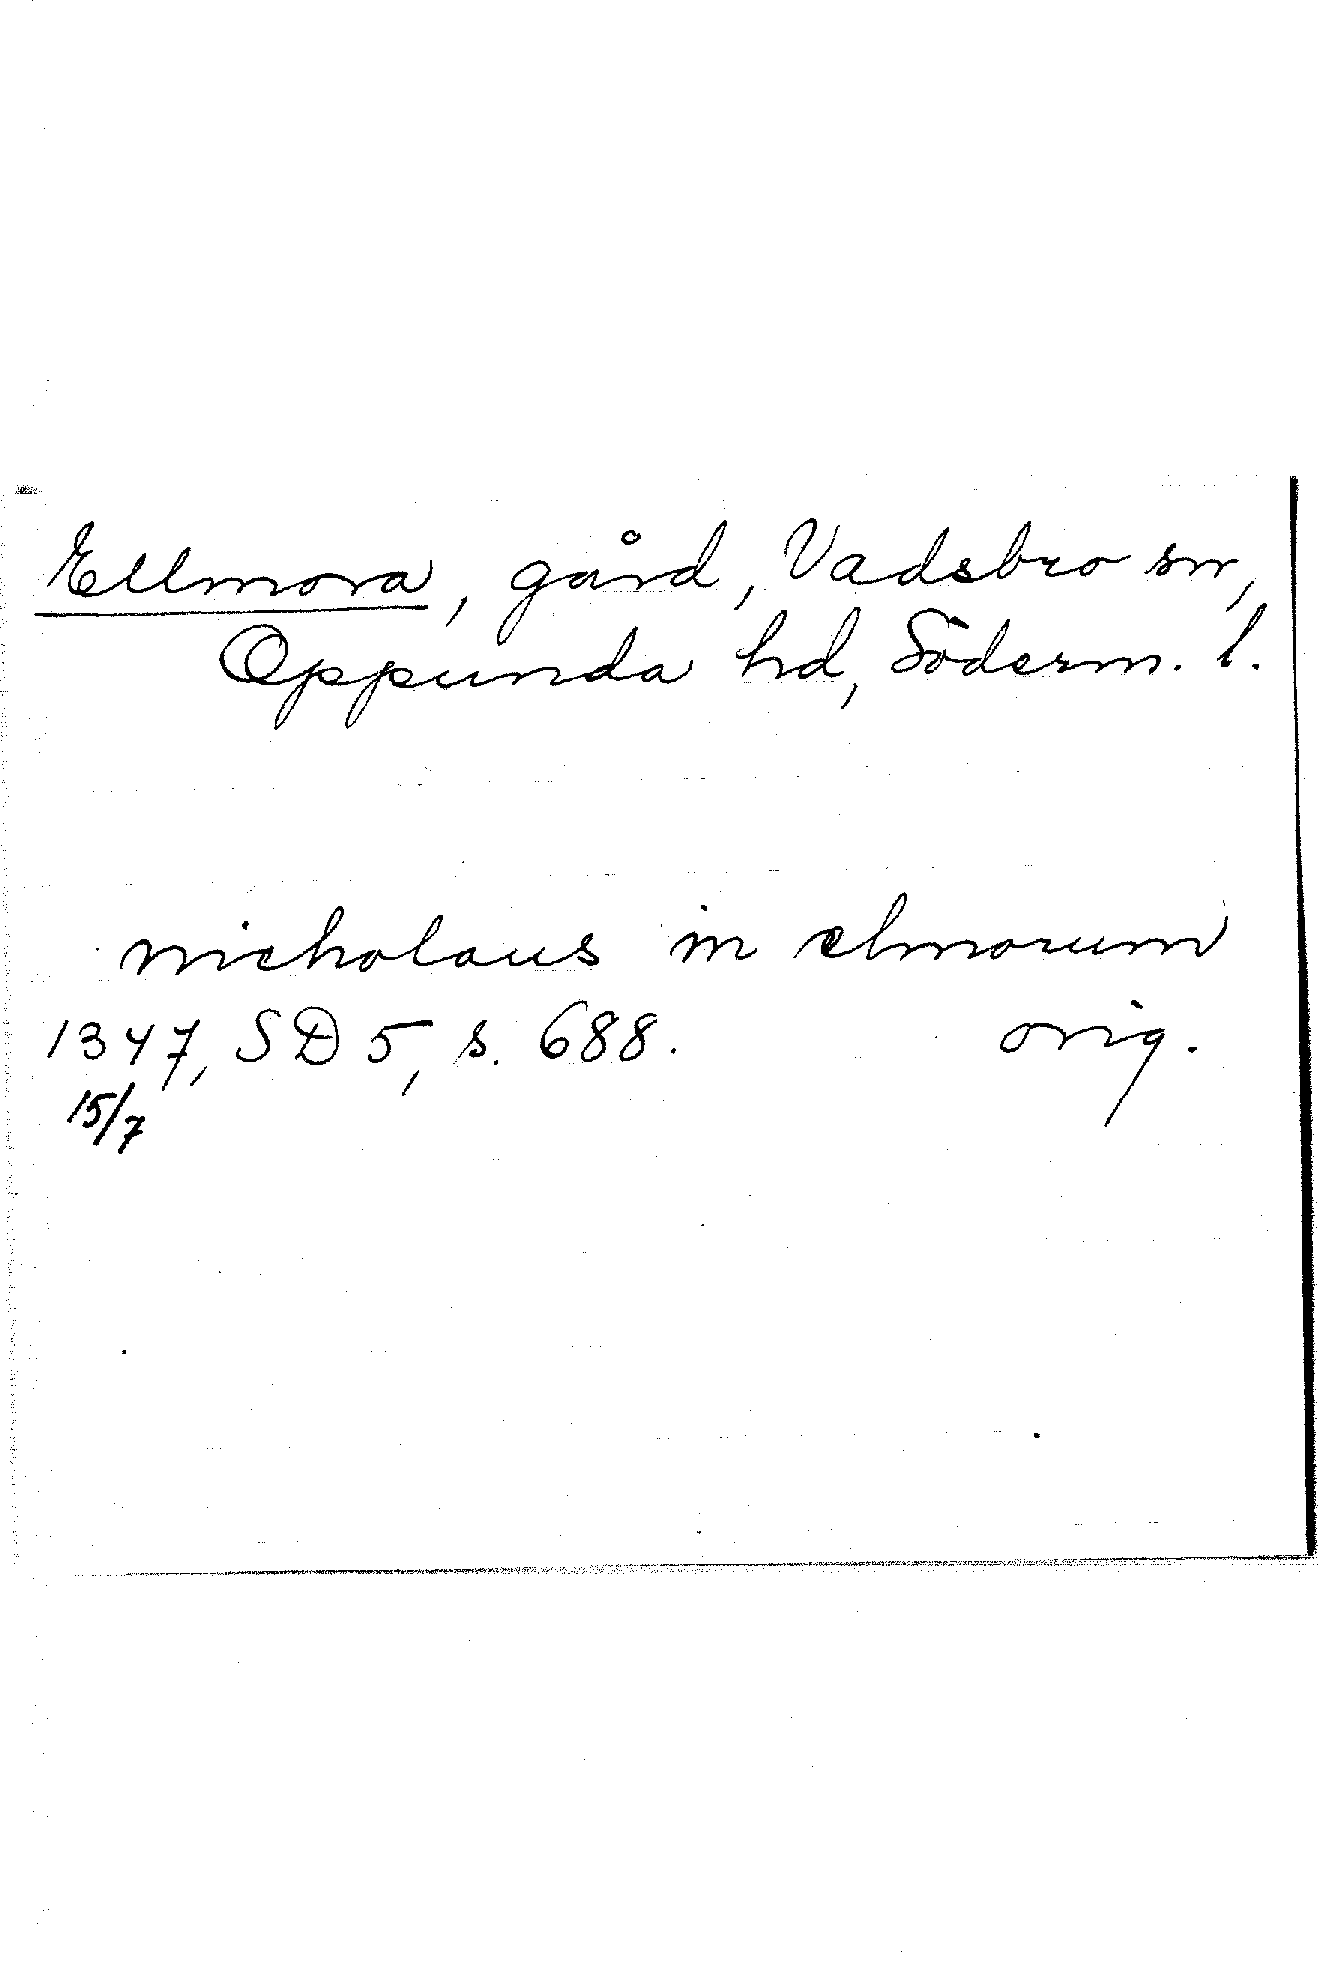 Ellmora, gård, Vadsbro sn,
Oppunda hd, Söderm. l.
nicholaus in elmorum
1347, SD 5, s. 688. orig.
15/7